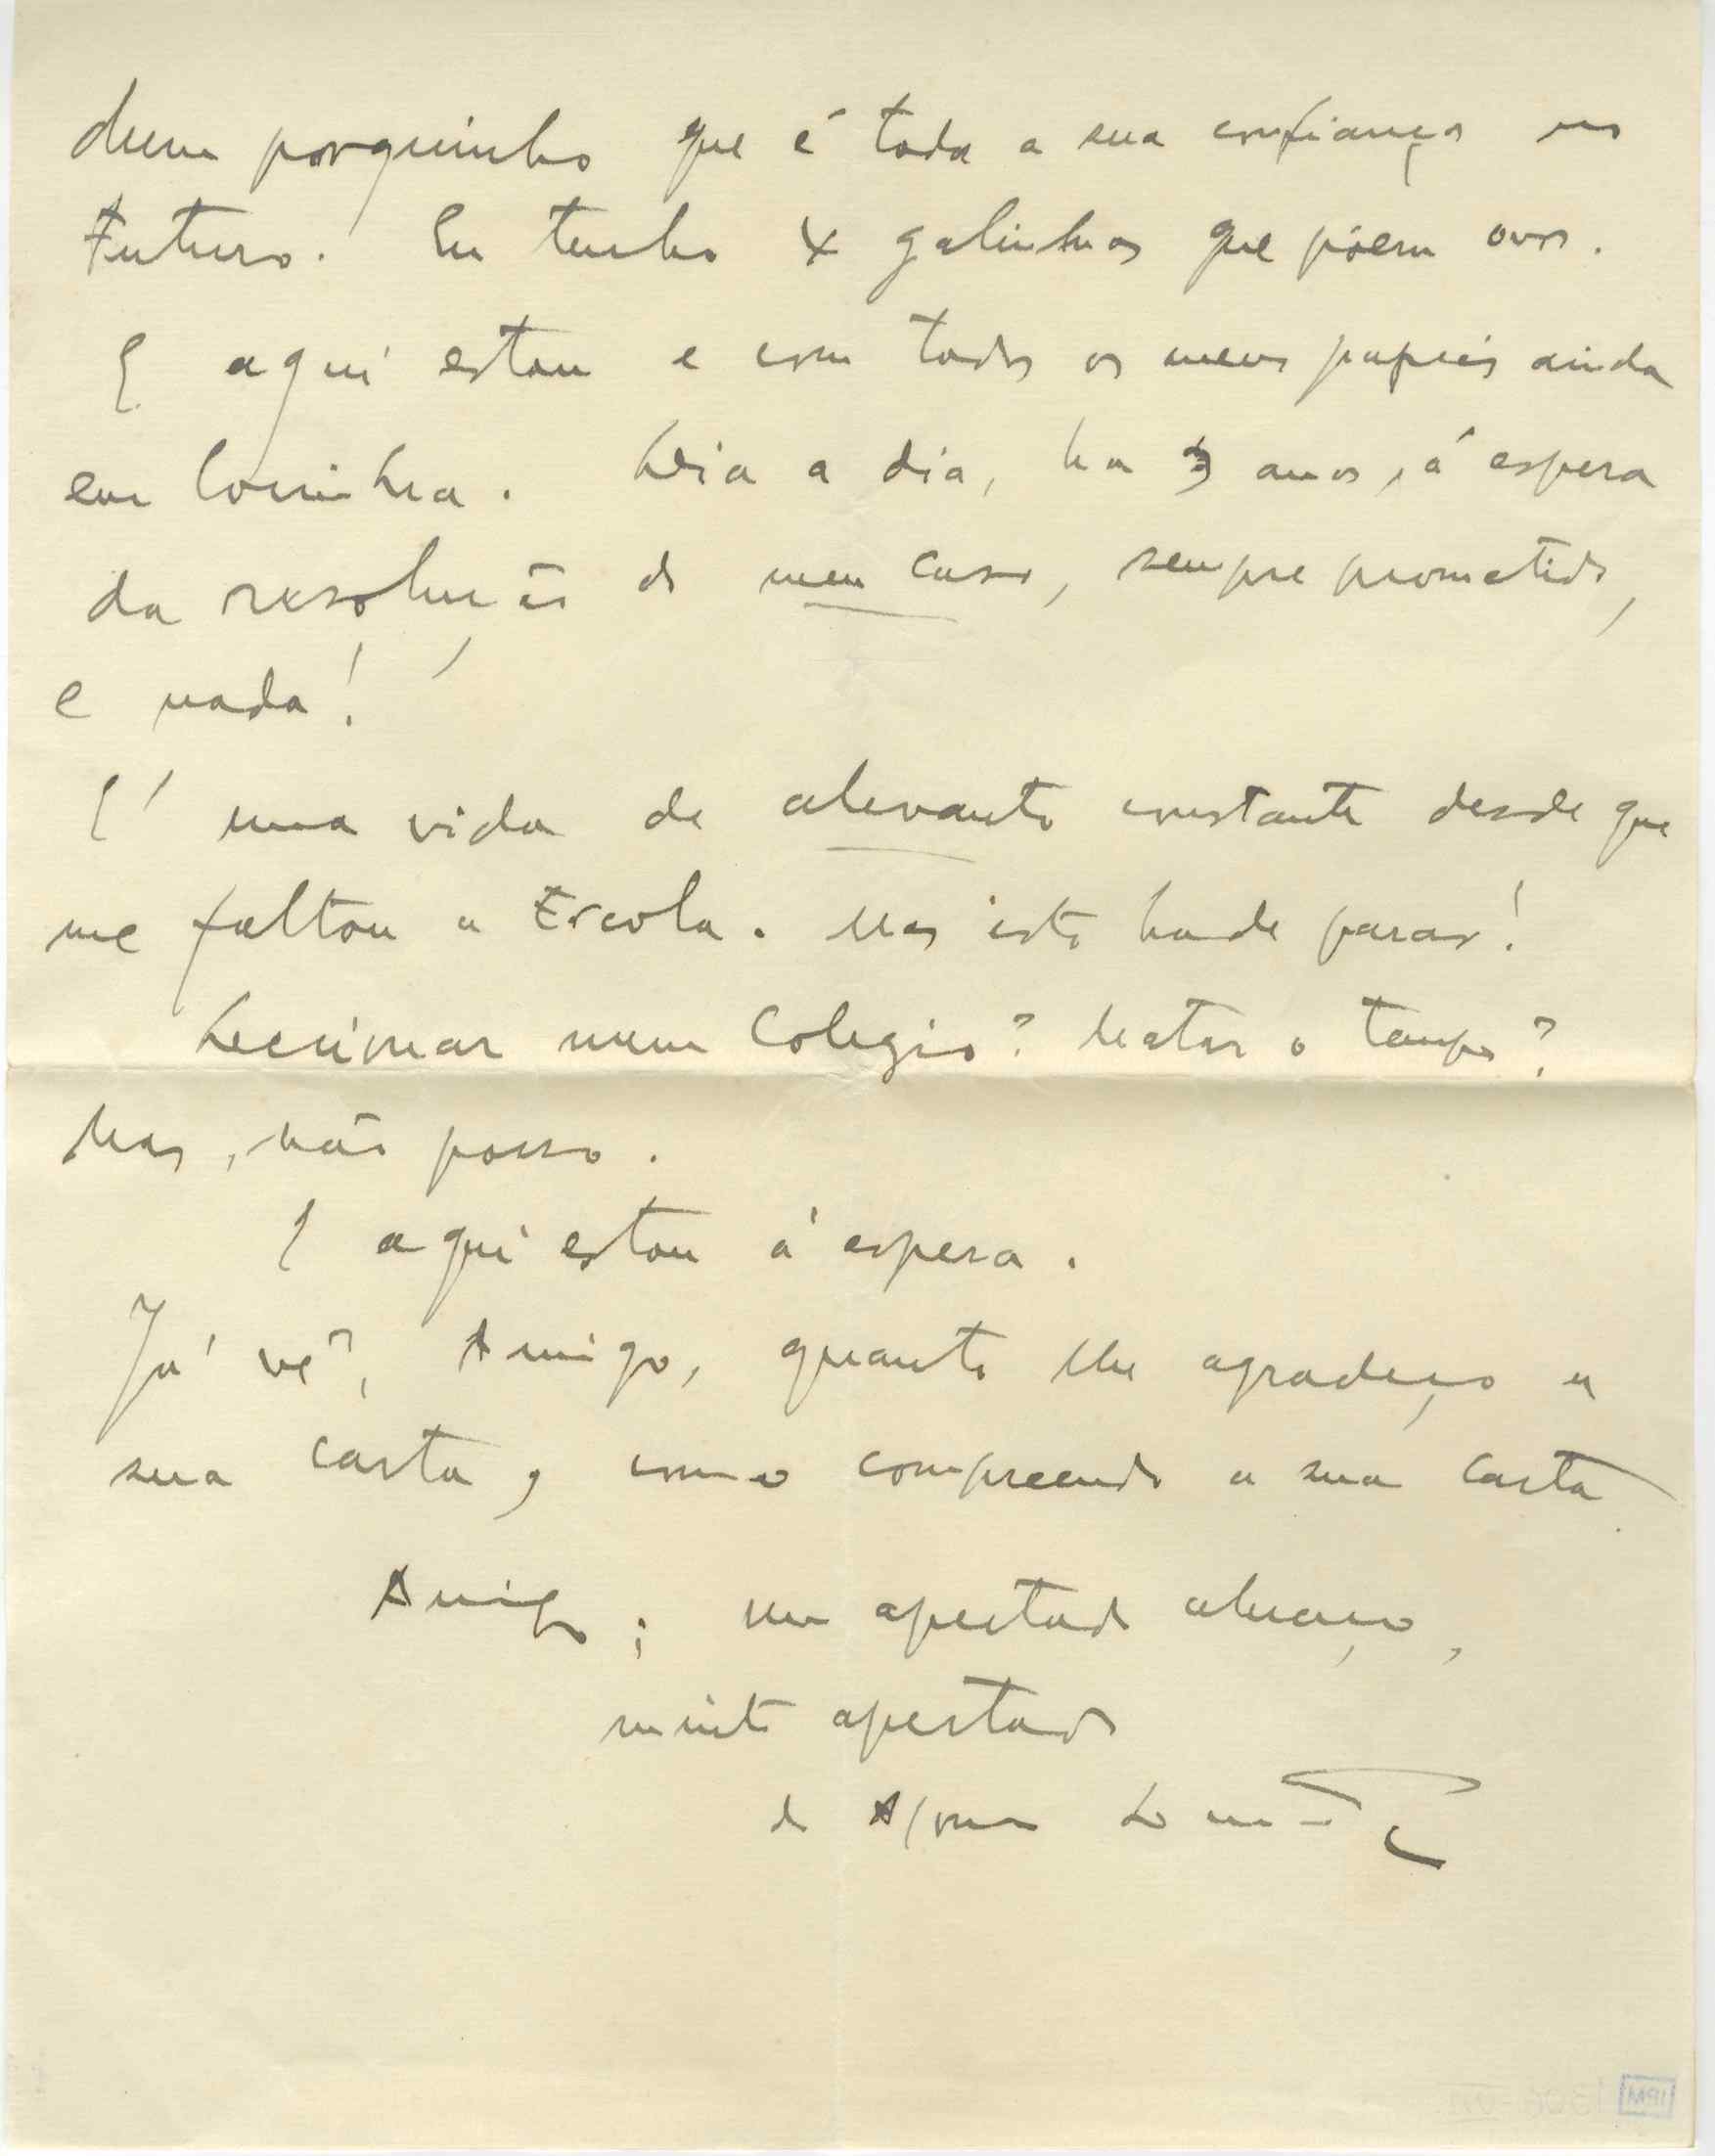 dum porquinho que é toda a sua confiança no
Futuro! Eu tenho 4 galinhas que põem ovos.
E aqui estou e com todos os meus papeis ainda
em Coimbra. Dia a dia, ha 3 anos, á espera
da resolução do meu caso, sempre prometido,
e nada!
E' uma vida de alevanto constante desde que
me faltou a Escola. Mas isto hade parar!
Leccionar num Colegio? Matar o tempo?
Mas, não posso.
E aqui estou á espera.
Já vê, Amigo, quanto lhe agradeço a
sua carta, como compreendo a sua carta.
Amigo; um apertado abraço,
muito apertado
do Afonso Duarte